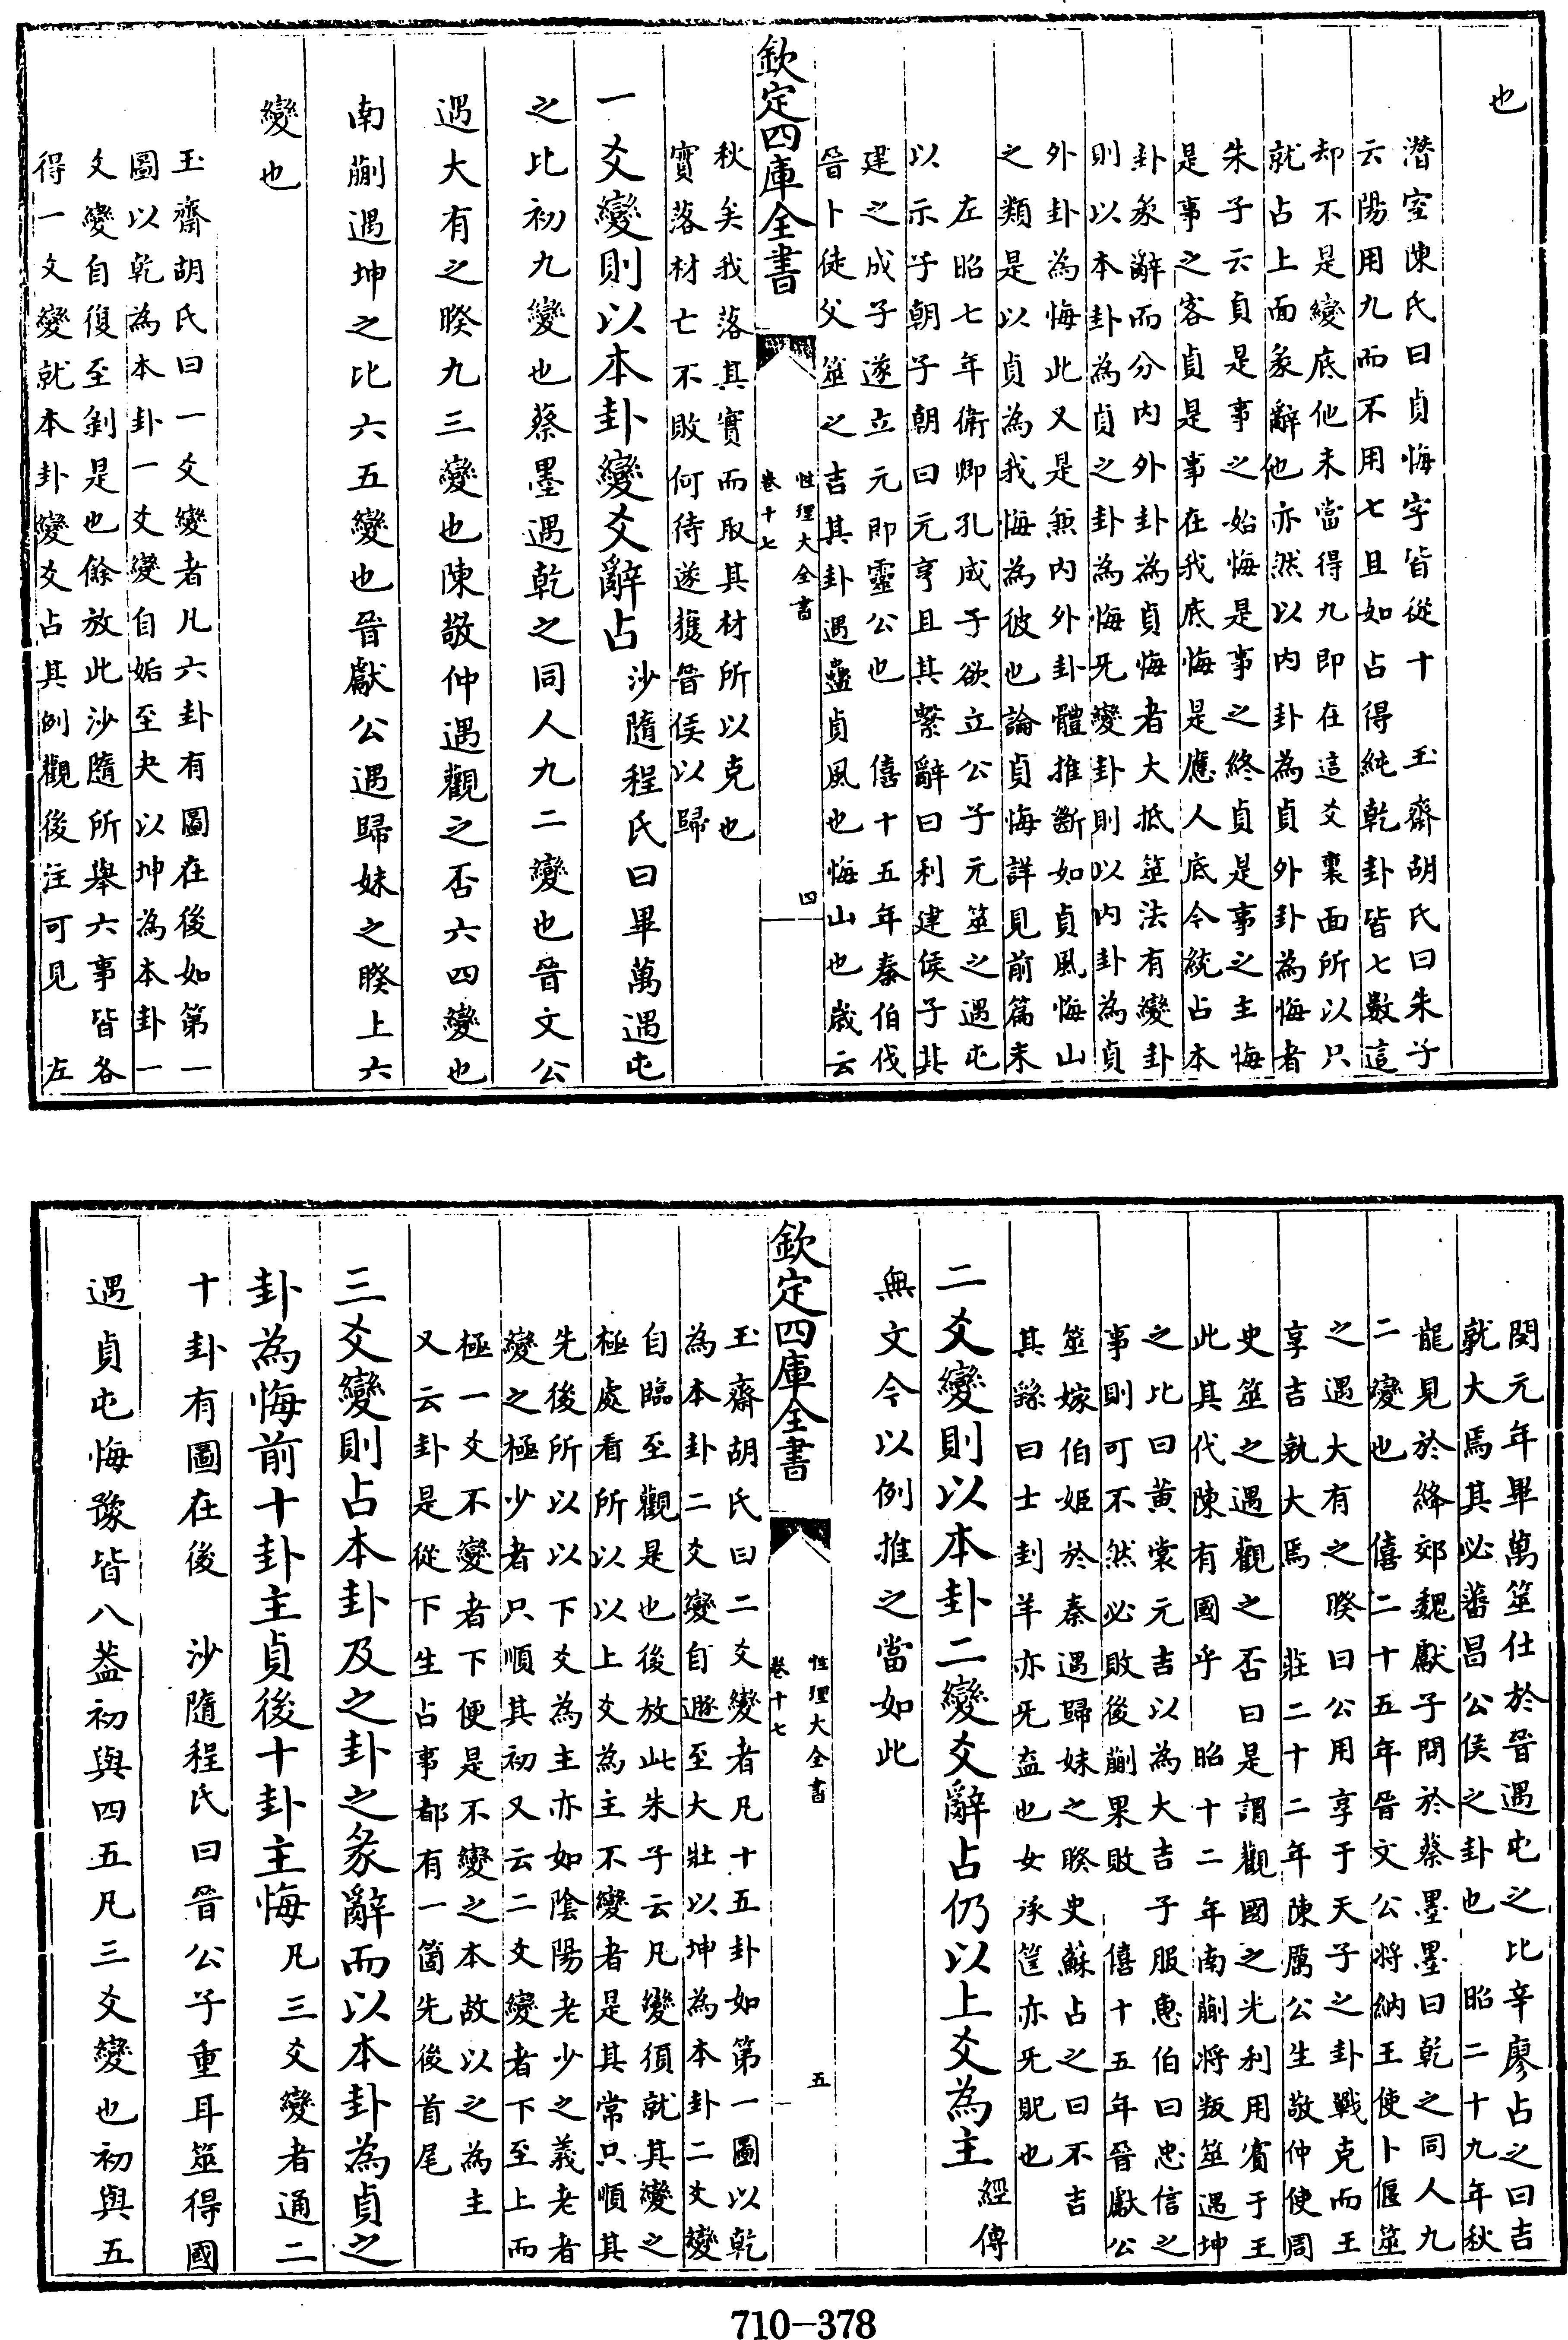 也
潛室陳氏曰貞悔字皆從十　玉齋胡氏曰朱子
云陽用九而不用七且如占得純乾卦皆七數這
却不是變底他未當得九即在這爻裏面所以只
就占上面彖辭他亦然以内卦為貞外卦為悔者
朱子云貞是事之始悔是事之終貞是事之主悔
是事之客貞是事在我底悔是應人底今統占本
卦彖辭而分内外卦為貞悔者大抵筮法有變卦
則以本卦為貞之卦為悔旡變卦則以内卦為貞
外卦為悔此又是兼内外卦體推斷如貞風悔山
之類是以貞為我悔為彼也論貞悔詳見前篇末
左昭七年衛卿孔成子欲立公子元筮之遇屯
以示子朝子朝曰元亨且其繫辭曰利建侯子其
建之成子遂立元即靈公也　僖十五年秦伯伐
晉卜徒父筮之吉其卦遇蠱貞風也悔山也歲云
欽定四庫全書
性理大全書
卷十七
四
秋矣我落其實而取其材所以克也
實落材亡不敗何待遂獲晉侯以歸
一爻變則以本卦變爻辭占沙隨程氏曰畢萬遇屯
之比初九變也蔡墨遇乾之同人九二變也晉文公
遇大有之睽九三變也陳敬仲遇觀之否六四變也
南蒯遇坤之比六五變也晉獻公遇歸妹之睽上六
變也
玉齋胡氏曰一爻變者凡六卦有圖在後如第一
圖以乾為本卦一爻變自姤至夬以坤為本卦一
爻變自復至剝是也餘放此沙隨所舉六事皆各
得一爻變就本卦變爻占其例觀後注可見　左
閔元年畢萬筮仕於晉遇屯之比辛廖占之曰吉
孰大焉其必蕃昌公侯之卦也　昭二十九年秋
龍見於絳郊魏獻子問於蔡墨墨曰乾之同人九
二變也　僖二十五年晉文公將納王使卜偃筮
之遇大有之睽曰公用享于天子之卦戰克而王
享吉孰大焉　莊二十二年陳厲公生敬仲使周
史筮之遇觀之否曰是謂觀國之光利用賓于王
此其代陳有國乎　昭十二年南蒯將叛筮遇坤
之比曰黃裳元吉以為大吉子服惠伯曰忠信之
事則可不然必敗後蒯果敗　僖十五年晉獻公
筮嫁伯姬於秦遇歸妹之睽史蘇占之曰不吉
其繇曰士刲羊亦旡衁也女承筐亦旡貺也
二爻變則以本卦二變爻辭占仍以上爻為主經傳
無文今以例推之當如此
欽定四庫全書
性理大全書
卷十七
五
玉齋胡氏曰二爻變者凡十五卦如第一圖以乾
為本卦二爻變自遯至大壯以坤為本卦二爻變
自臨至觀是也後放此朱子云凡變須就其變之
極處看所以以上爻為主不變者是其常只順其
先後所以以下爻為主亦如陰陽老少之義老者
變之極少者只順其初又云二爻變者下至上而
極一爻不變者下便是不變之本故以之為主
又云卦是從下生占事都有一箇先後首尾
三爻變則占本卦及之卦之彖辭而以本卦為貞之
卦為悔前十卦主貞後十卦主悔凡三爻變者通二
十卦有圖在後　沙隨程氏曰晉公子重耳筮得國
遇貞屯悔豫皆八蓋初與四五凡三爻變也初與五
710-378